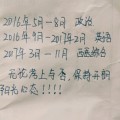 2016年5月—8月 政治
2016年9月—2017年2月 英语
2017年3月—11月 西医综合
无论考上与否,保持开朗
阳光心态!!!!